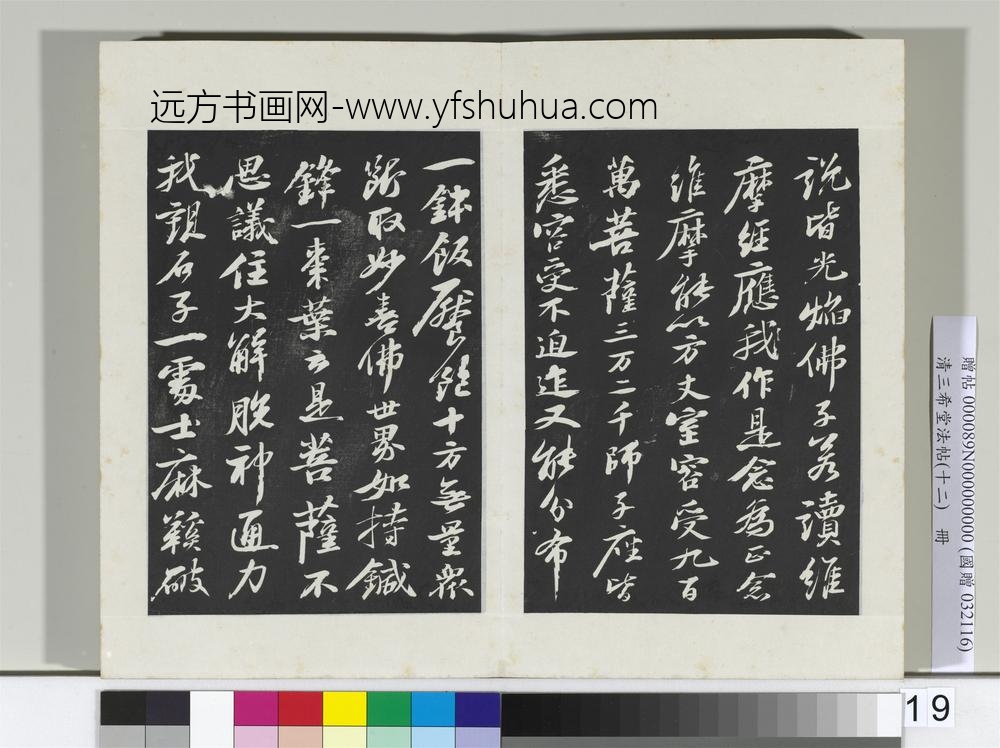 远方书画网-www.yfshuhua.com
說皆光焰佛子若讀維
摩經應我作是念為正念
維摩能以方丈室容受九百
萬菩薩三万二千師子座皆
悉容受不迫迮又能分布
一鉢飯饜飽十方無量衆
斷取妙喜佛世界如持鍼
鋒一棗葉云是菩薩不
思議住大解脫神通力
我觀石子一處士麻鞵破
贈帖 000089N000000000 (國贈 032116)
清三希堂法帖(十二) 冊
19